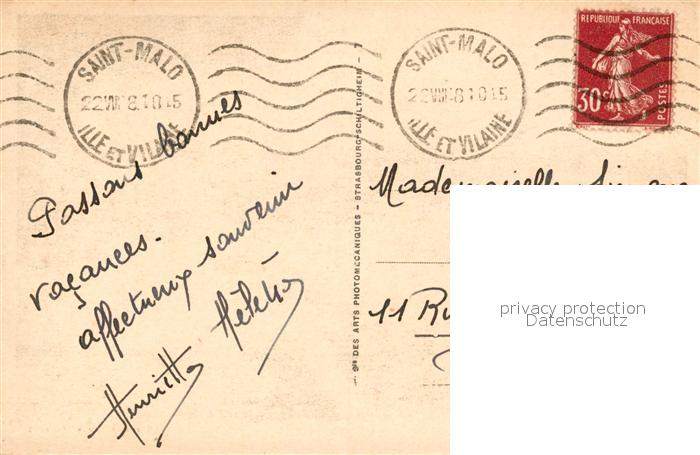 SAINT-MALO
22 VIII 8.1015
ILLE ET VILAINE
SAINT-MALO
22 VIII 8 1015
ILLE ET VILAINE
REPUBLIQUE FRANÇAISE
30 c
POSTES
Passons bonnes
vacances.
affectueux souvenir
Henriette
Mademoiselle
11 Ru
Sté DES ARTS PHOTOMECANIQUES - STRASBOURG-SCHILTIGHEIM -
privacy protection
Datenschutz